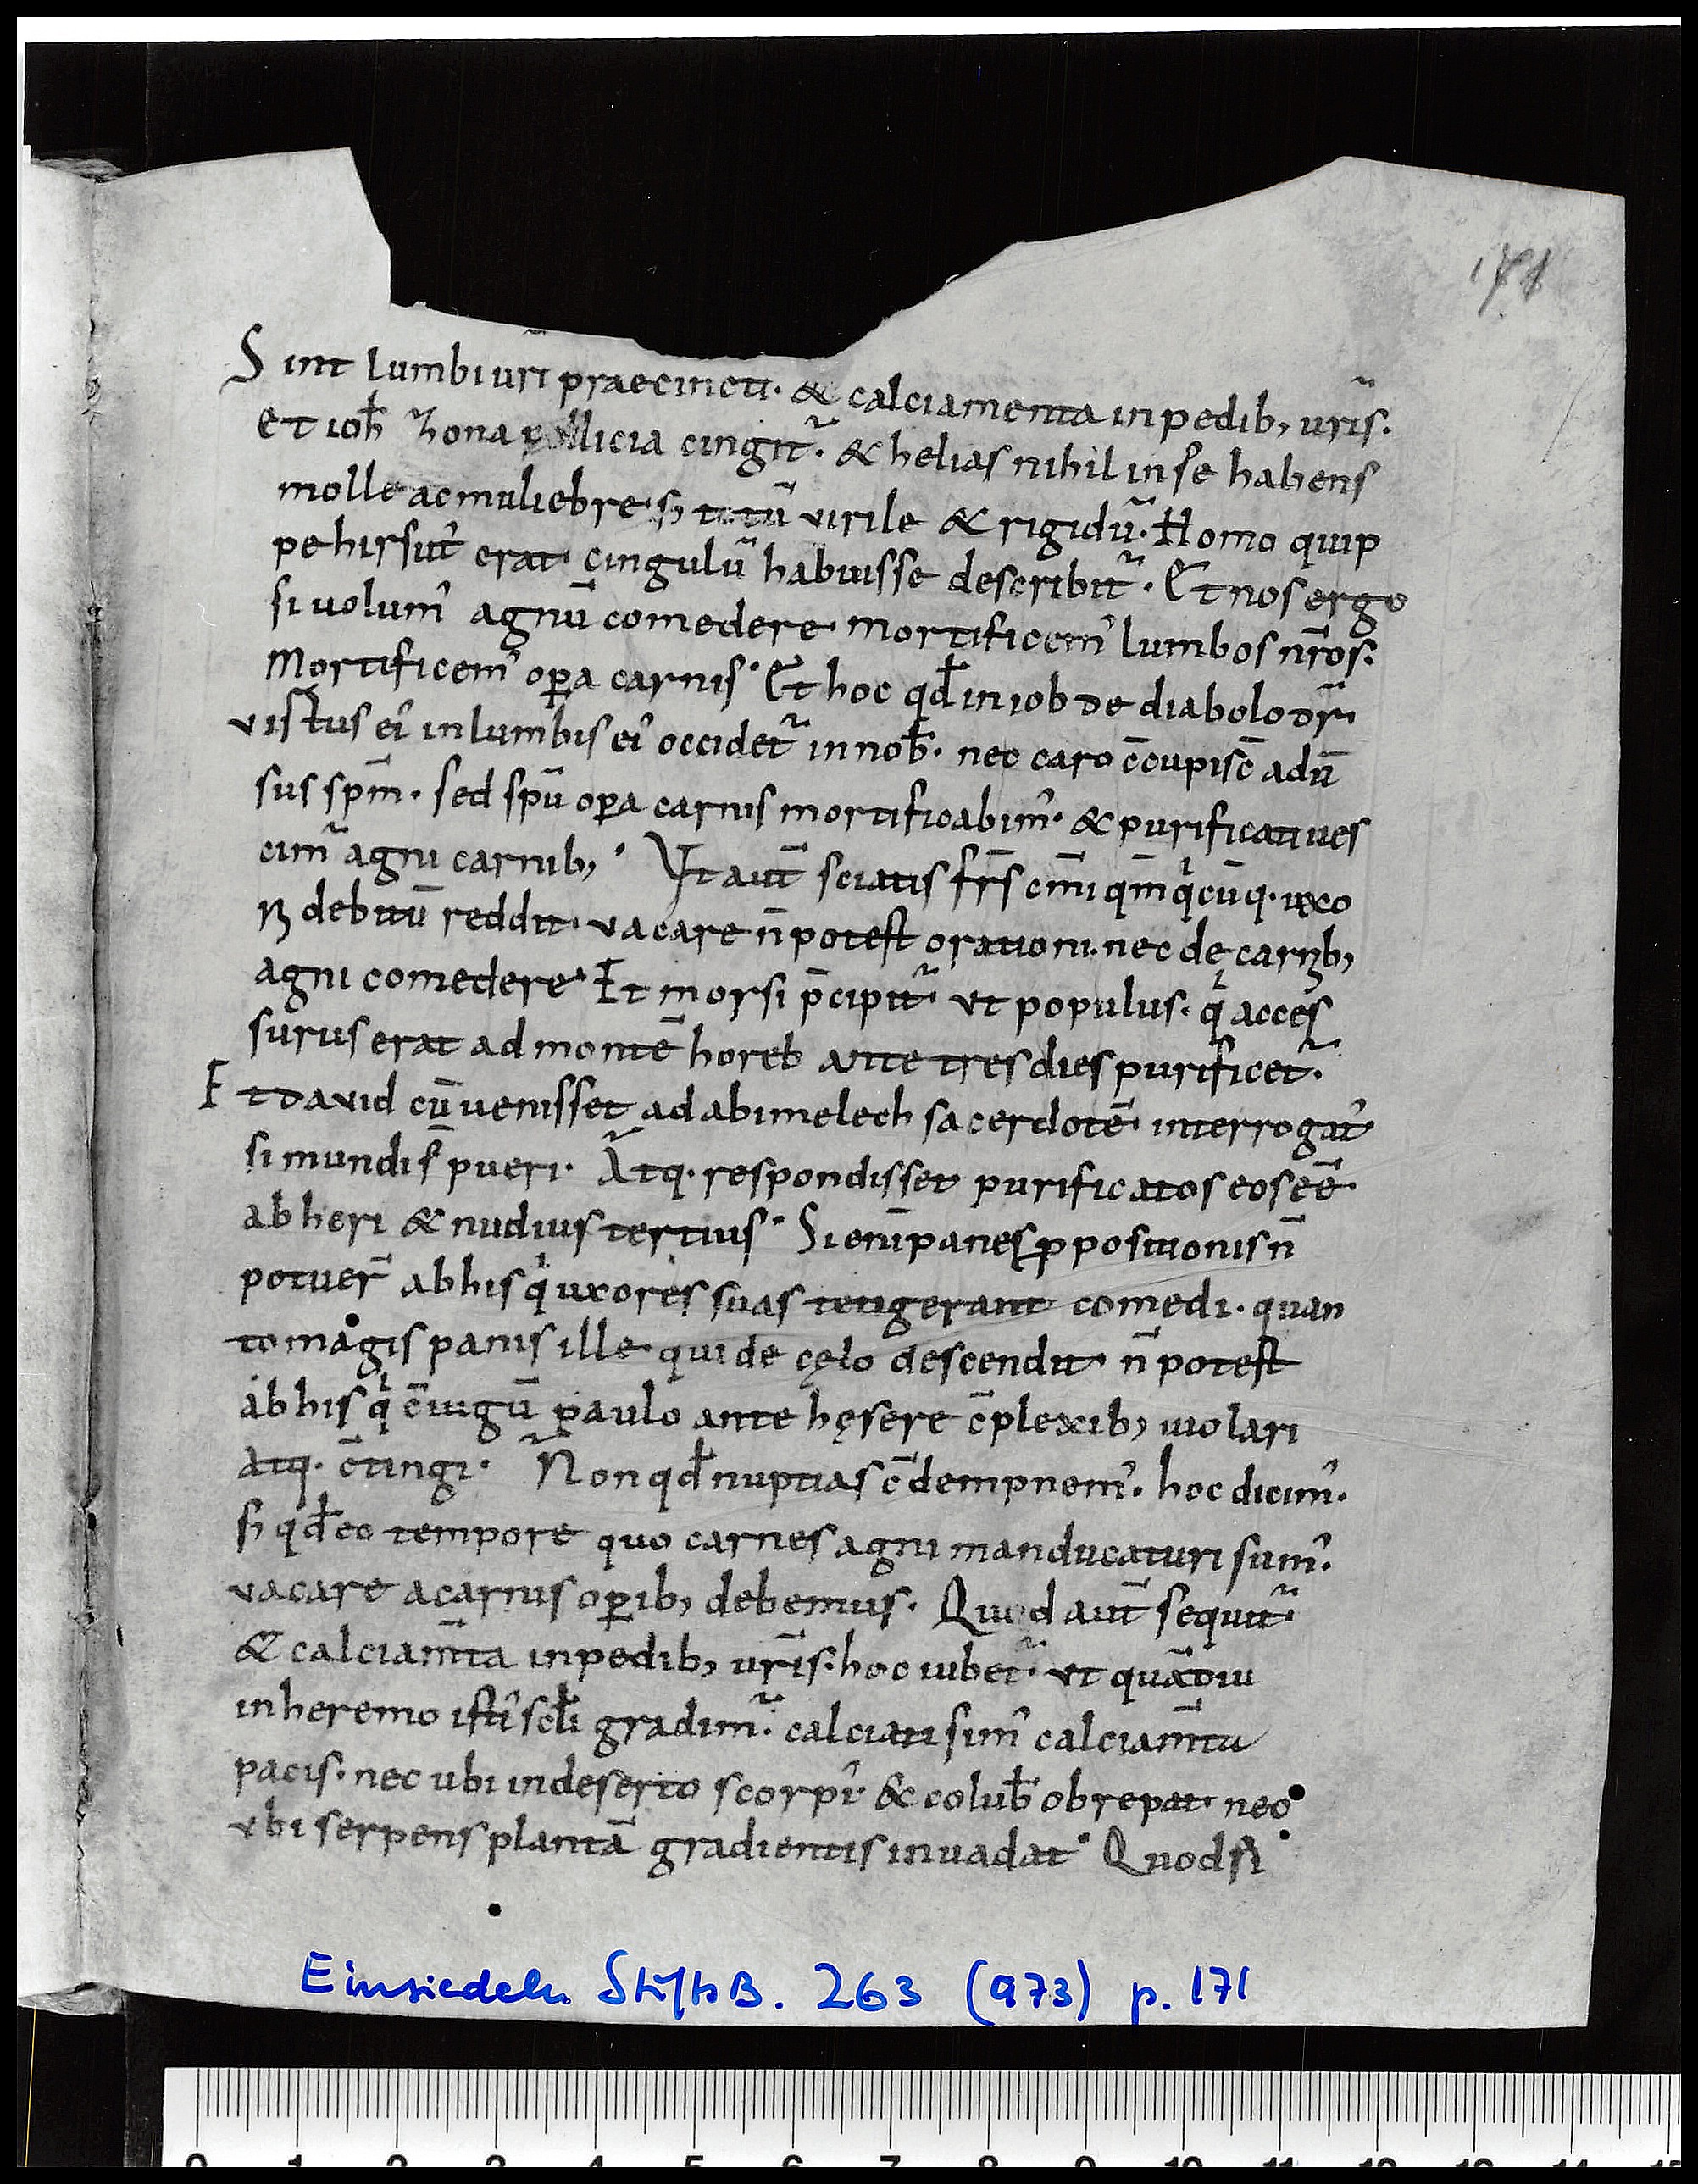 171
Sint lumbi ur̄i praecincti. & calciamenta in pedib; ur̄is.
et ioh̄ zona pellicia cingit᷒. & helias nihil in se habens
molle ac muliebre. s; totū virile & rigidū. Homo quip
pe hirsut᷒ erat. cingulū habuisse describit᷒. Et nos ergo
si uolum᷒ agnū comedere. mortificem᷒ lumbos nr̄os.
Mortificem᷒ oꝑa carnis. Et hoc qđ in iob de diabolo dr̄.
virtus ei᷒ in lumbis ei᷒ occidet᷒ in nob̄. nec caro c̄cupisc̄ aduū
sus sp̄m. sed sp̄u oꝑa carnis mortificabim᷒. & purificati ues
cim᷒ agni carnib;. Vt aut̄ sciatis fr̄s cm̄i qm̄ qⁱcūq. uxo
ri debitū reddit. vacare n̄ potest orationi. nec de carnib;
agni comedere. Et moysi p̄cipit᷒. vt populus. qⁱ acces
surus erat ad montē horeb ante tres dies purificet᷒.
Et david cū uenisset ad abimelech sacerdotē. interrogat᷒
si mundi s̄ pueri. Atq. respondisset purificatos eos eē.
ab heri & nudius tertius. Si enī panes ꝓpositionis n̄
potuer̄ ab his qⁱ uxores suas tetigerant comedi. quan
to magis panis ille. qui de cęlo descendit. n̄ potest
ab his qⁱ c̄iugū paulo ante hęsere c̄plexib; uiolari
atq. c̄tingi. Non qđ nuptias c̄dempnem᷒. hoc dicim᷒.
s; qđ eo tempore quo carnes agni manducaturi sum᷒.
vacare a carnis oꝑib; debemus. Quod aut̄ sequit᷒.
& calciam̄ta in pedib; ur̄is. hoc iubet᷒. vt quādiu
in heremo isti᷒ sc̄li gradim᷒. calciati sim᷒ calciam̄tu
pacis. nec ubi in deserto scorpi᷒ & colub̄ obrepat. nec
vbi serpens plantā gradientis inuadat. Quod si
Einsiedeln StiftsB. 263 (973) p. 171
0 1 2 3 4 5 6 7 8 9 10 11 12 13 14 15